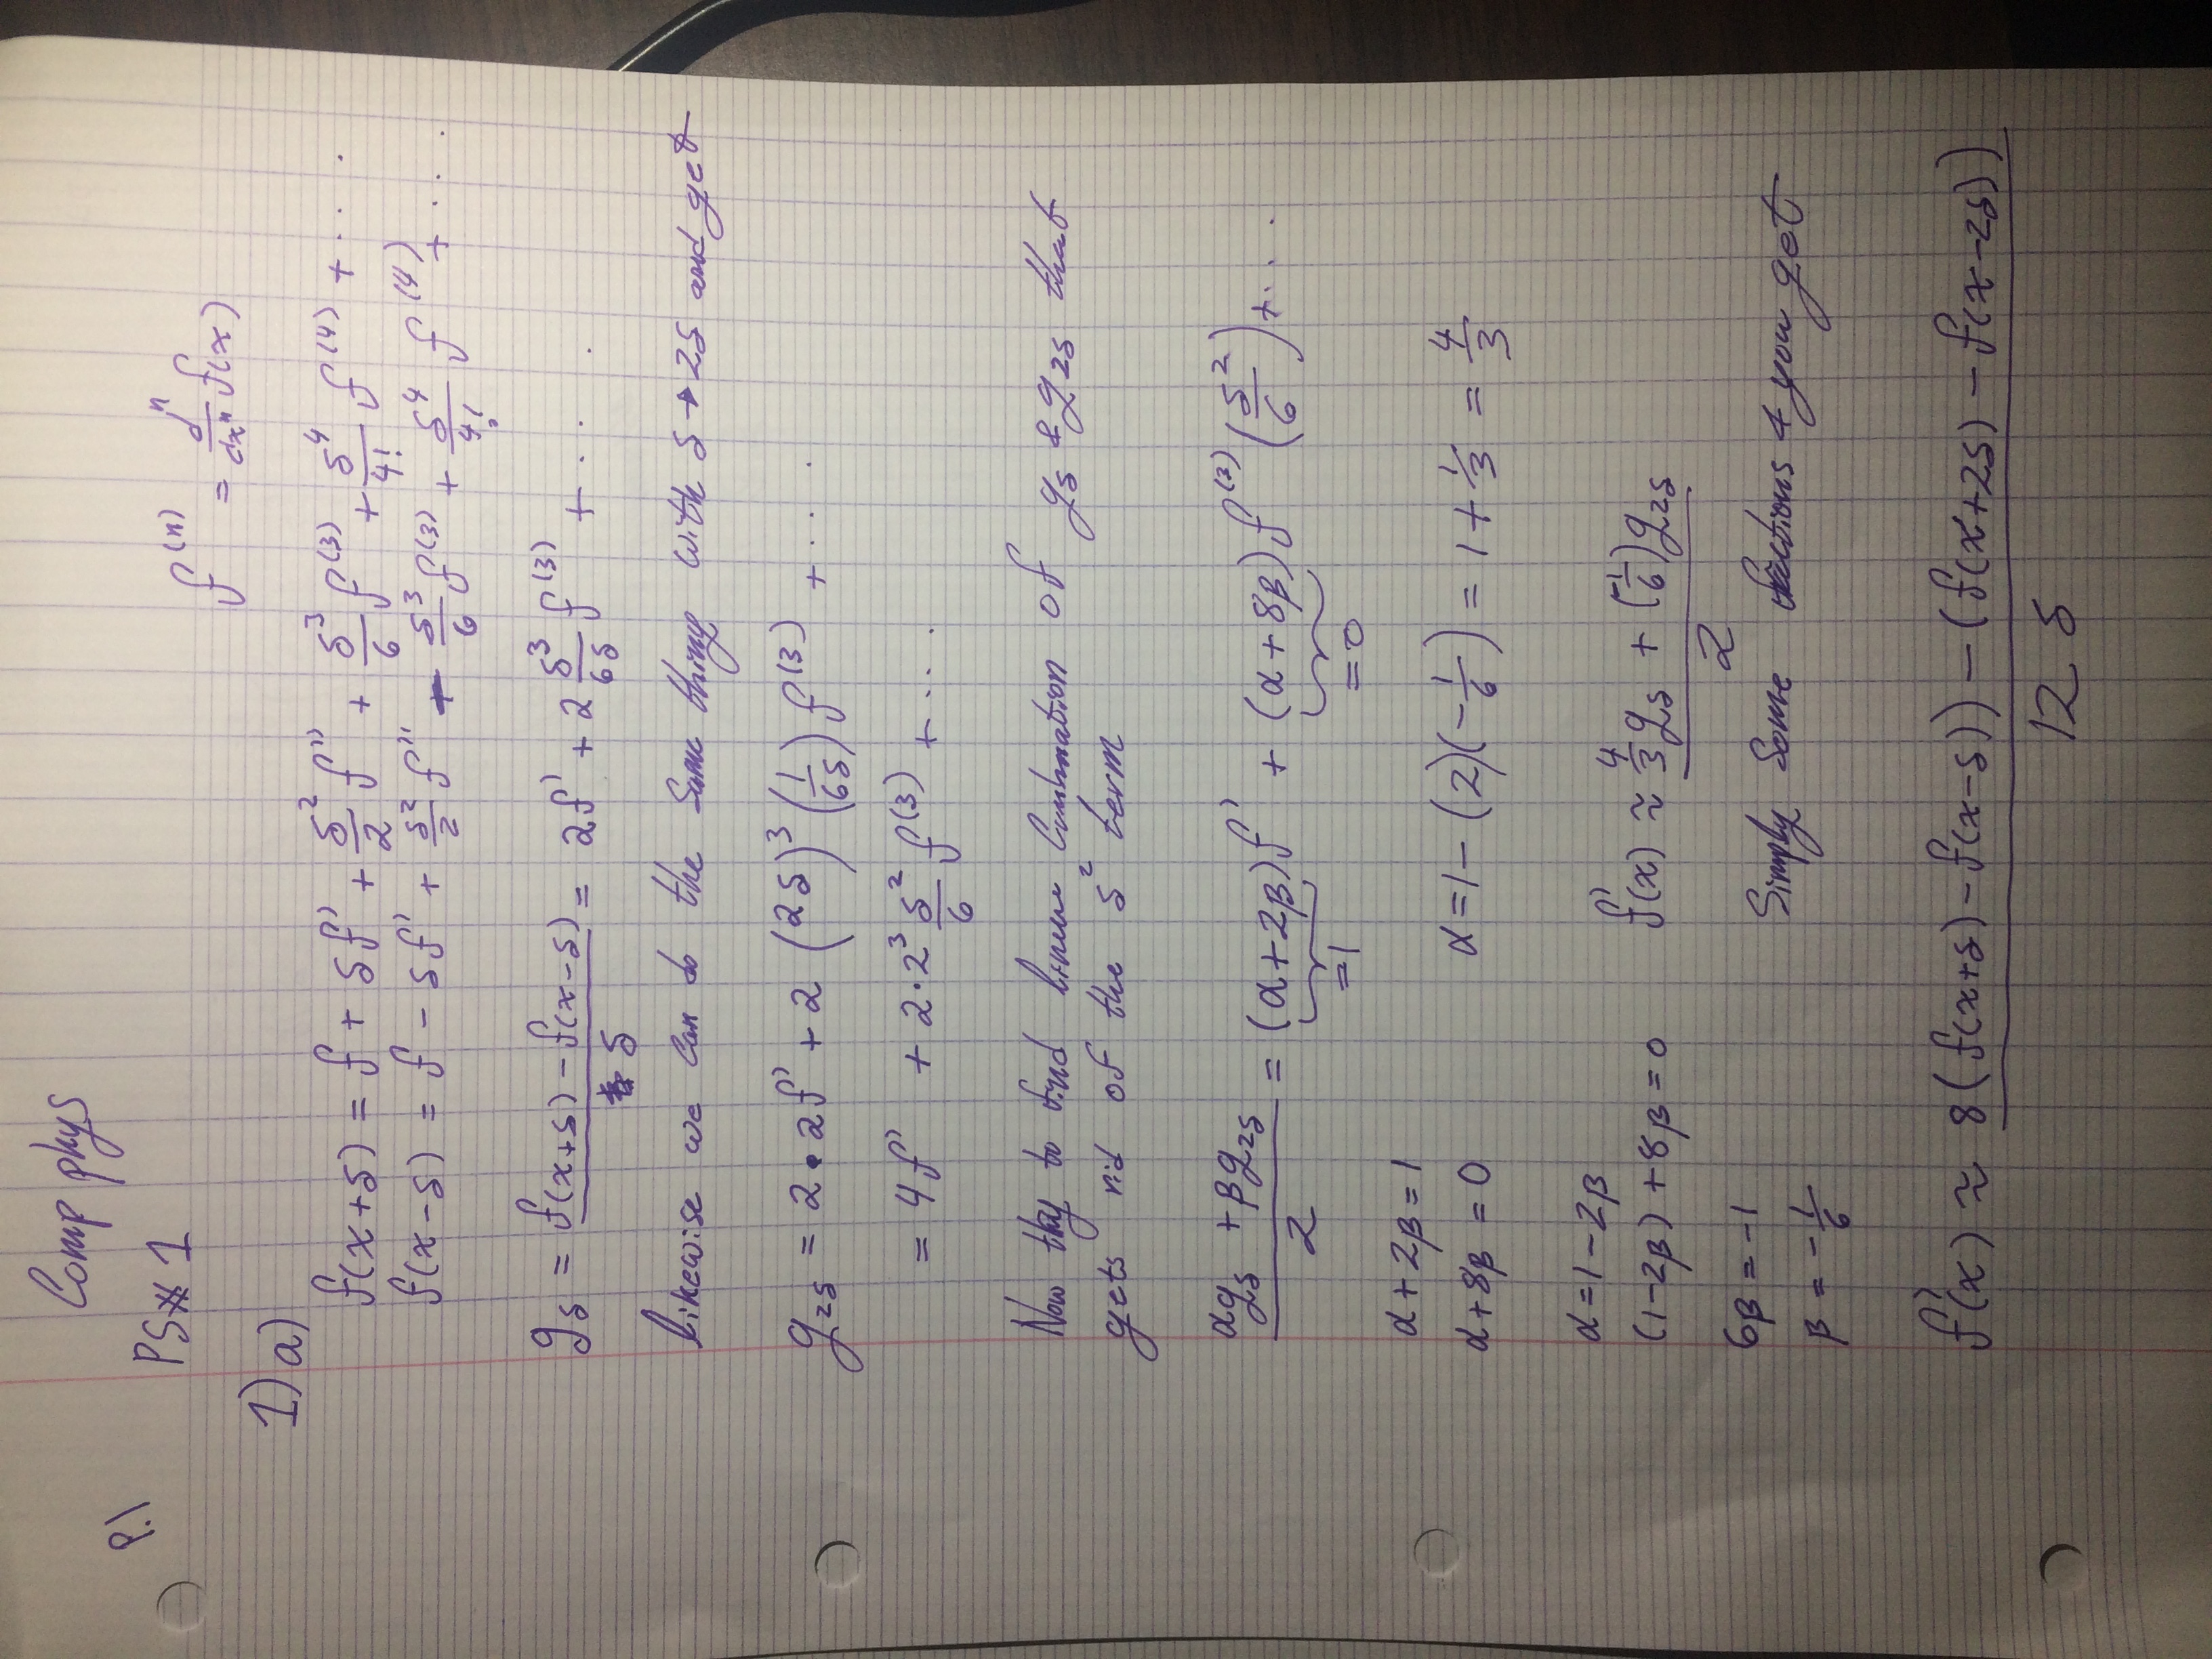 Comp phys
P.1
PS# 1
f^(n) = d^n/dx^n f(x)
1) a)
f(x+δ) = f + δf' + δ²/2 f'' + δ³/6 f^(3) + δ⁴/4! f^(4) + ....
f(x-δ) = f - δf' + δ²/2 f'' - δ³/6 f^(3) + δ⁴/4! f^(4) + ....
g_δ = (f(x+δ) - f(x-δ))/δ = 2f' + 2 δ³/6δ f^(3) + ....
likewise we can do the same thing with δ → 2δ and get
g_2δ = 2•2f' + 2 (2δ)³ (1/6δ) f^(3) + ....
= 4f' + 2·2³ δ²/6 f^(3) + ....
Now try to find linear combination of g_δ & g_2δ that
gets rid of the δ² term
(αg_δ + βg_2δ)/2 = (α+2β)f' + (α+8β) f^(3) (δ²/6) + ....
=1 =0
α+2β=1
α+8β = 0
α=1-(2)(-1/6) = 1+1/3 = 4/3
α=1-2β
(1-2β)+8β=0
f'(x) ≈ (4/3 g_δ + (-1/6)g_2δ)/2
6β=-1
Simply some fractions & you get
β = -1/6
f'(x) ≈ (8(f(x+δ)-f(x-δ)) - (f(x+2δ) - f(x-2δ)))/12 δ